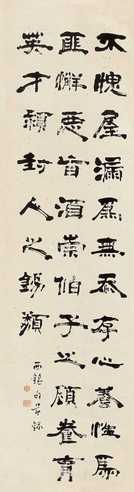 不愧屋漏爲無忝存心養性爲
匪懈惡旨酒崇伯子之顧養育
英才潁封人之錫類
西銘